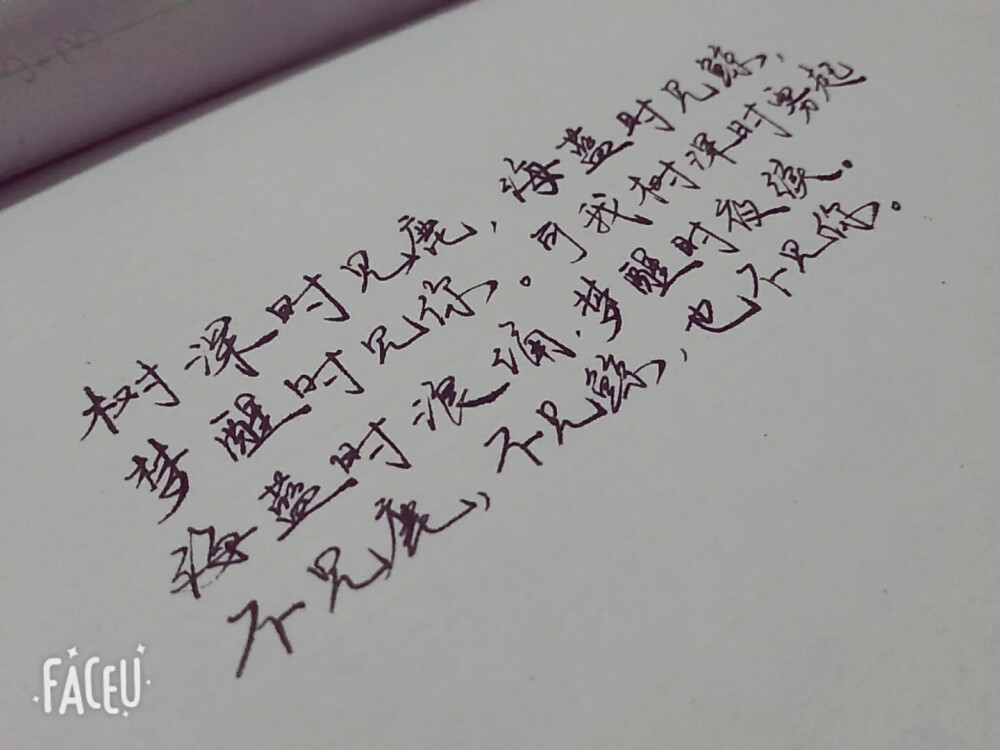 树深时见鹿,海蓝时见鲸,
梦醒时见你。可我树深时雾起
海蓝时浪涌,梦醒时夜续。
不见鹿,不见鲸,也不见你。
FACEU